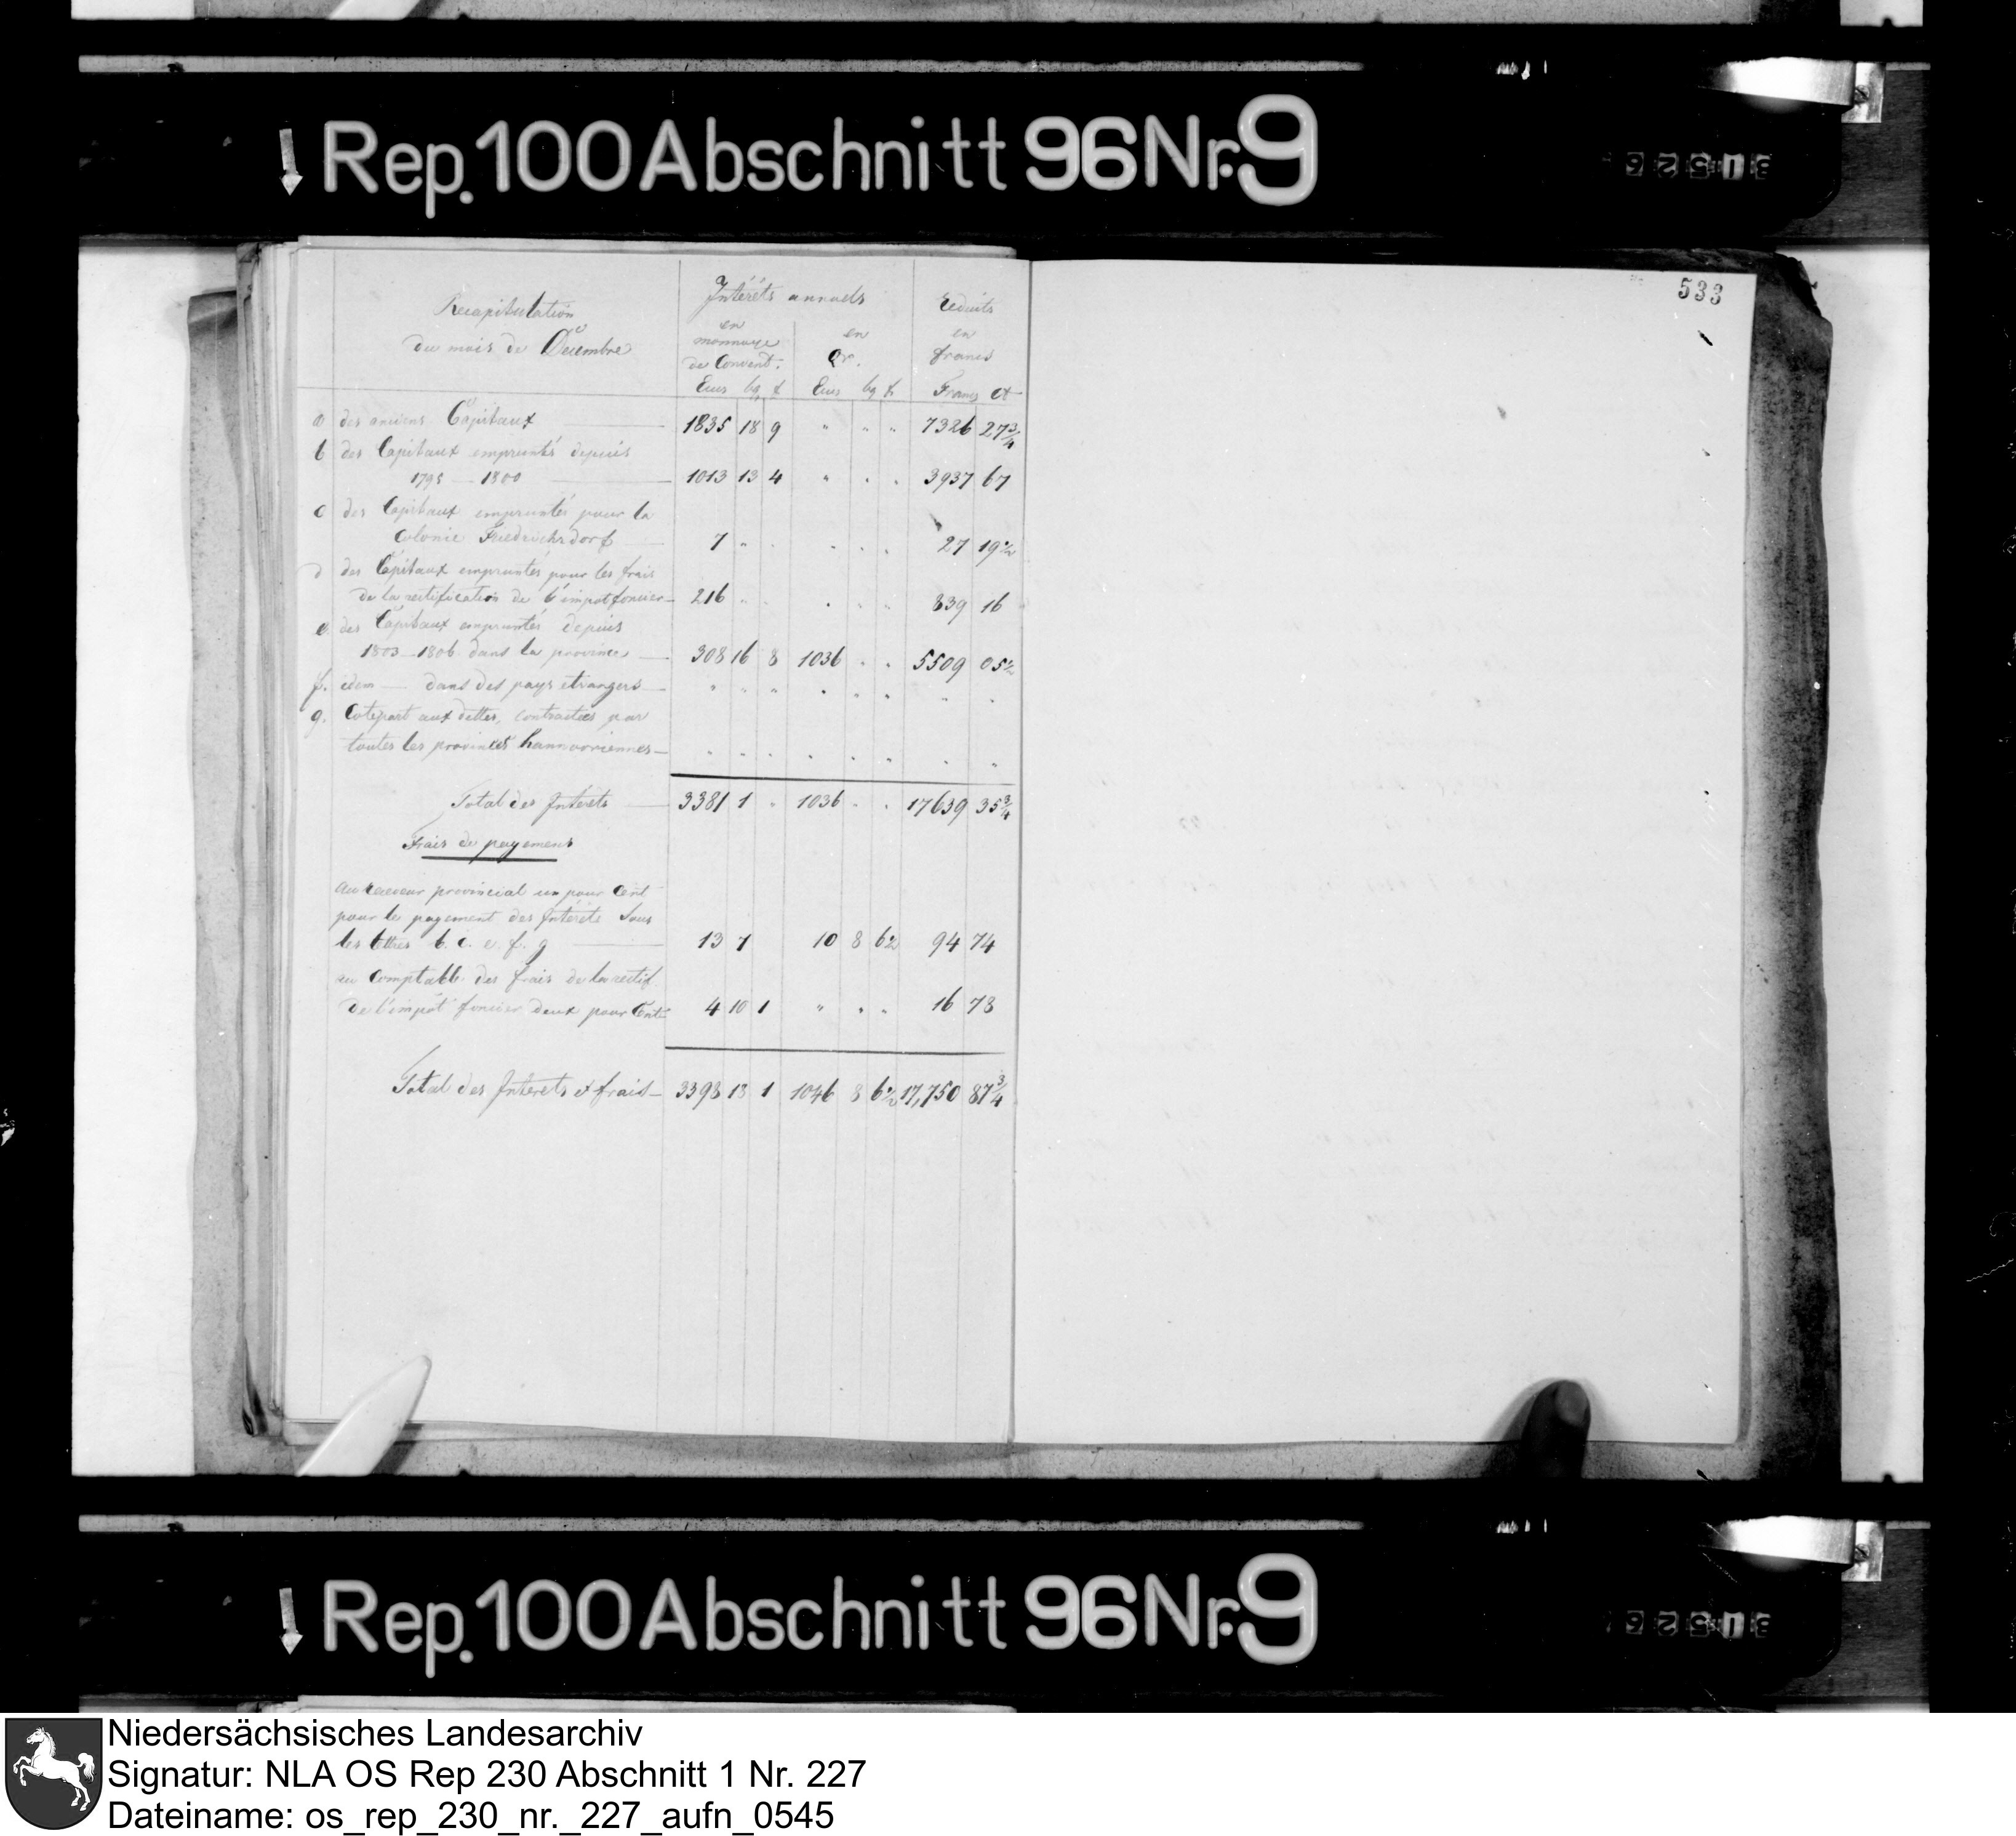 Rep. 100 Abschnitt 96 Nr. 9
533
Recapitulation
du mois de Décembre
Intérêts annuels
en monnoye de Convent.
en Or.
Réduits en francs
Ecus bg ₰ Ecus bg ₰ Francs Ct
a des anciens Capitaux 1835 18 9 " " " 7326 27 3/4
b des Capitaux empruntés depuis
1795 — 1800 1013 13 4 " " " 3937 67
c des Capitaux empruntés pour la
Colonie Friedrichsdorf 7 " " " " " 27 19 1/2
d des Capitaux empruntés pour les frais
de la rectification de l'impot foncier 216 " " " " " 839 16
e. des Capitaux empruntés depuis
1803 — 1806 dans la province 308 16 8 1036 " " 5509 05 1/2
f. idem — dans des pays etrangers " " " " " " " "
g. Cotepart aux dettes, contractées par
toutes les provinces hannovriennes " " " " " " " "
Total des Interets 3381 1 " 1036 " " 17639 35 3/4
Frais de payement
Au receveur provincial un pour Cent
pour le payement des Intérêts sous
les lettres b. c. e. f. g 13 7 10 8 6 1/2 94 74
au Comptable des frais de la rectif.
de l'impôt foncier deux pour Cent 4 10 1 " " " 16 78
Total des Interets et frais 3398 18 1 1046 8 6 1/2 17,750 87 3/4
Rep. 100 Abschnitt 96 Nr. 9
Niedersächsisches Landesarchiv
Signatur: NLA OS Rep 230 Abschnitt 1 Nr. 227
Dateiname: os_rep_230_nr._227_aufn_0545